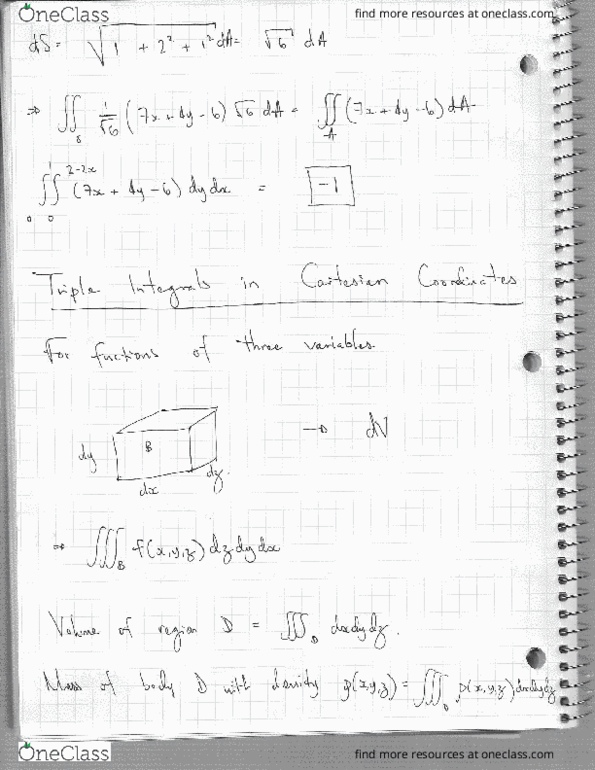 OneClass find more resources at oneclass.com
dS = √(1 + 2² + 1²) dA = √6 dA
⇒ ∬_S 1/√6 (7x + 4y - 6) √6 dA = ∬_A (7x + 4y - 6) dA
∫₀¹ ∫₀^(2-2x) (7x + 4y - 6) dy dx = -1
Triple Integrals in Cartesian Coordinates
For functions of three variables.
B → dV
dy
dz.
dx
⇒ ∭_B f(x,y,z) dz dy dx
Volume of region D = ∭_D dx dy dz.
Mass of body D with density ρ(x,y,z) = ∭_D ρ(x,y,z) dx dy dz
OneClass find more resources at oneclass.com